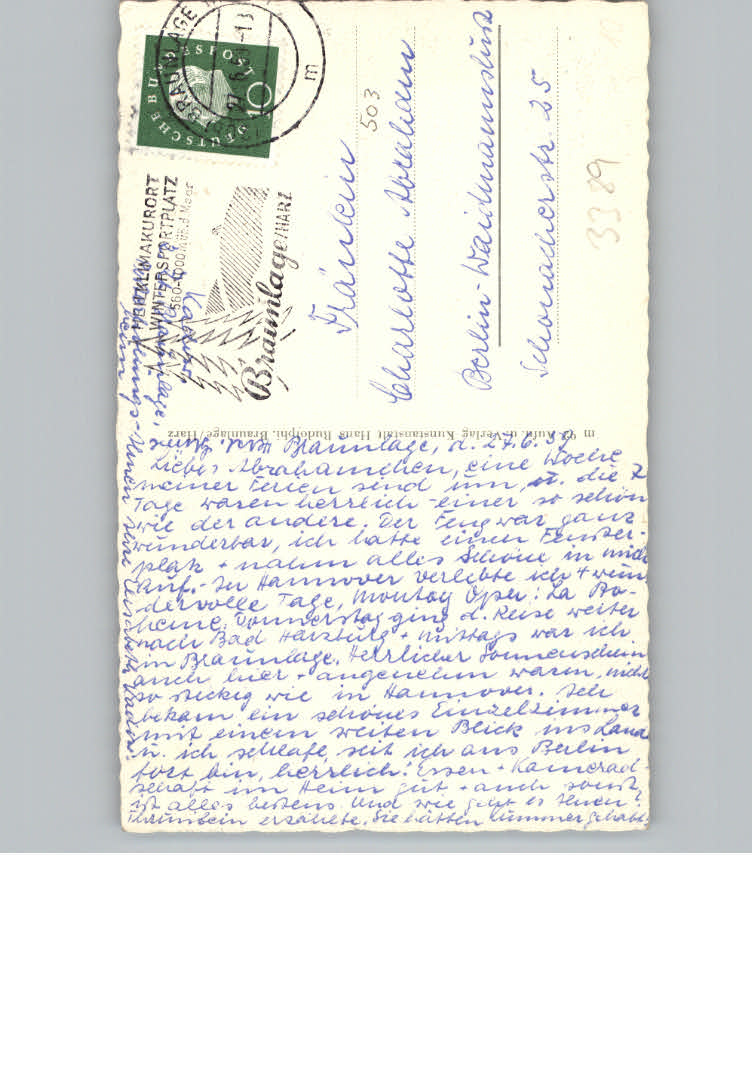 DEUTSCHE BUNDESPOST
10
BRAUNLAGE
27.6.59-13
m
HEILKLIMAKURORT
WINTERSPORTPLATZ
560-1000 m ü.d. Meer
Braunlage/HARZ
503
Fräulein
Charlotte Abraham
Berlin-Waidmannslust
Schonacherstr. 25
3389
m 93 Aufn. u. Verlag Kunstanstalt Hans Rudolphi, Braunlage/Harz
Braunlage, d. 27.6.59
Liebes Abrahamchen, eine Woche
meiner Ferien sind um, u. die 7
Tage waren herrlich einer so schön
wie der andere. Der Flug war ganz
wunderbar, ich hatte einen Fenster-
platz + nahm alles Schöne in mich
auf. - In Hannover verlebte ich 4 wun-
dervolle Tage, Montag Oper: La Bo-
heme. Donnerstag ging d. Reise weiter
nach Bad Harzburg + mittags war ich
in Braunlage. Herrlicher Sonnenschein
auch hier + angenehm warm, nicht
so stickig wie in Hannover. Ich
bekam ein schönes Einzelzimmer
mit einem weiten Blick ins Land
u. ich schlafe, seit ich aus Berlin
fort bin, herrlich! Essen + Kamerad-
schaft im Heim gut + auch sonst
ist alles bestens. Und wie geht es Ihnen?
erzählte, Sie hätten Kummer gehabt.